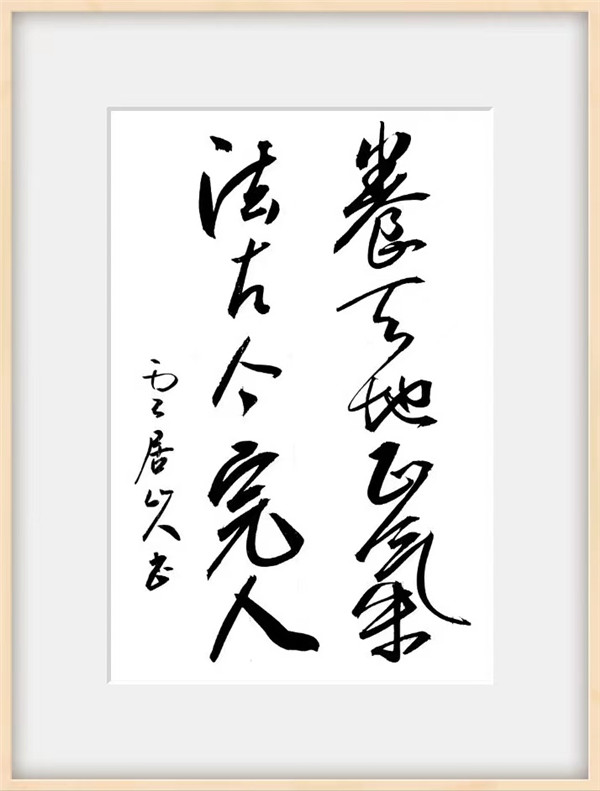 養天地正氣
法古今完人
雲居山人書